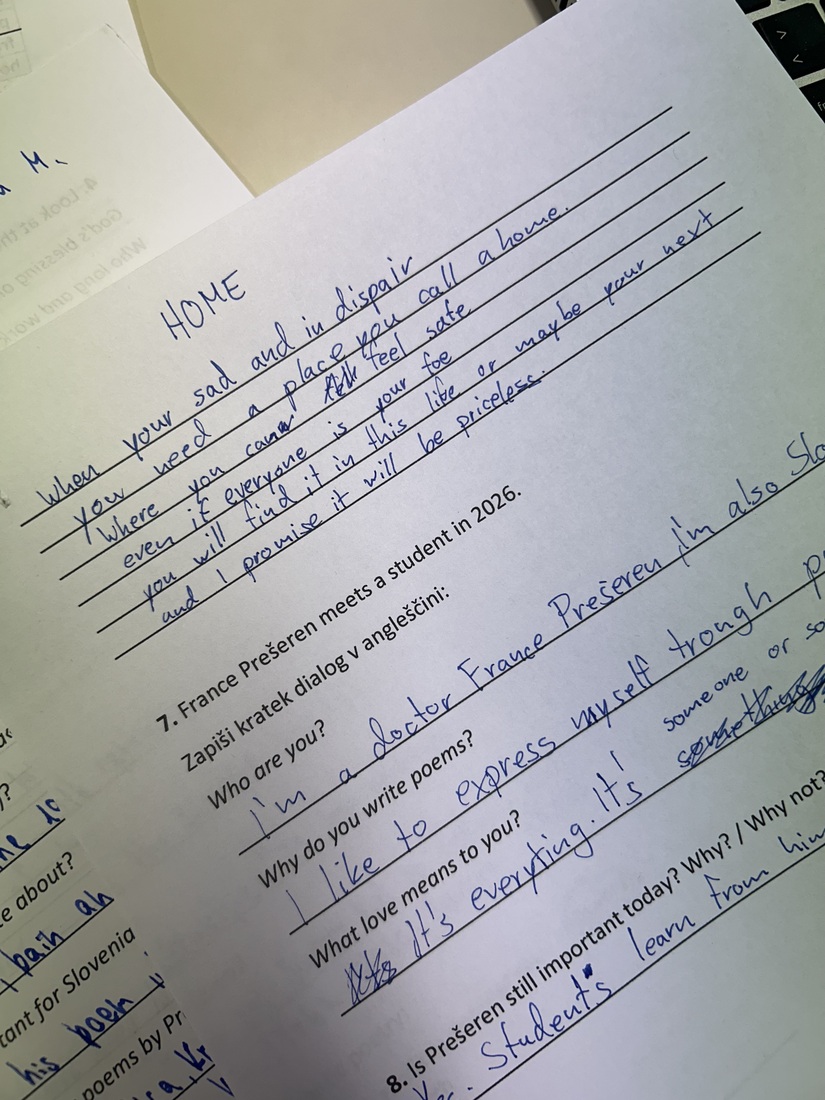 M.
HOME
When your sad and in dispair
you need a place you call a home.
Where you can feel safe
even if everyone is your foe
you will find it in this life or maybe your next
and I promise it will be priceless.
7. France Prešeren meets a student in 2026.
Zapiši kratek dialog v angleščini:
Who are you?
I'm a doctor France Prešeren, i'm also Slo
Why do you write poems?
I like to express myself trough
What love means to you?
It's everyting. It's someone or so
8. Is Prešeren still important today? Why? / Why not?
Students learn from him
e about?
pain
tant for Slovenia
his poem
poems by Pr
4. Look at th
God's blessing
Who long and work